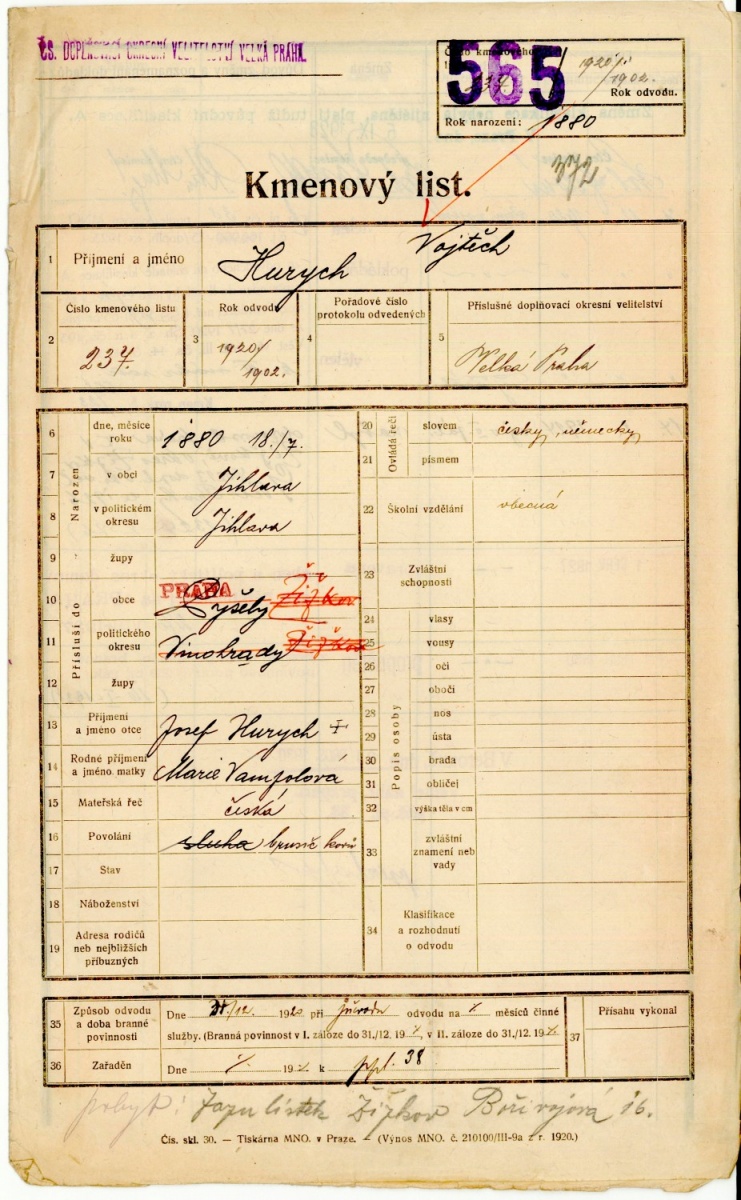 ČS. DOPLŇOVACÍ OKRESNÍ VELITELSTVÍ VELKÁ PRAHA
Číslo kmenového
565
1920/
1902.
Rok odvodu.
Rok narození: 1880
372
Kmenový list.
1 Příjmení a jméno Hurych Vojtěch
2 Číslo kmenového listu 237.
3 Rok odvodu 1920/1902.
4 Pořadové číslo protokolu odvedených
5 Příslušné doplňovací okresní velitelství Velká Praha
Narozen
6 dne, měsíce roku 1880 18./7.
7 v obci Jihlava
8 v politickém okresu Jihlava
Přísluší do
9 župy
10 obce PRAHA Pyšely Žižkov
11 politického okresu Vinohrady Žižkov
12 župy
13 Příjmení a jméno otce Josef Hurych †
14 Rodné příjmení a jméno matky Marie Vampolová
15 Mateřská řeč česká
16 Povolání sluha brusič kovů
17 Stav
18 Náboženství
19 Adresa rodičů neb nejbližších příbuzných
Ovládá řeči
20 slovem česky, německy
21 písmem
22 Školní vzdělání obecná
23 Zvláštní schopnosti
Popis osoby
24 vlasy
25 vousy
26 oči
27 obočí
28 nos
29 ústa
30 brada
31 obličej
32 výška těla v cm
33 zvláštní znamení neb vady
34 Klasifikace a rozhodnutí o odvodu
35 Způsob odvodu a doba branné povinnosti
Dne 31./12. 1920 při odvodu na měsíců činné
služby. (Branná povinnost v I. záloze do 31./12. 19 , v II. záloze do 31./12. 19
36 Zařaděn Dne 19 k ppl. 38
37 Přísahu vykonal
pobyt: Žižkov Bořivojová 16.
Čís. skl. 30. — Tiskárna MNO. v Praze. — (Výnos MNO. č. 210100/III-9a z r. 1920.)